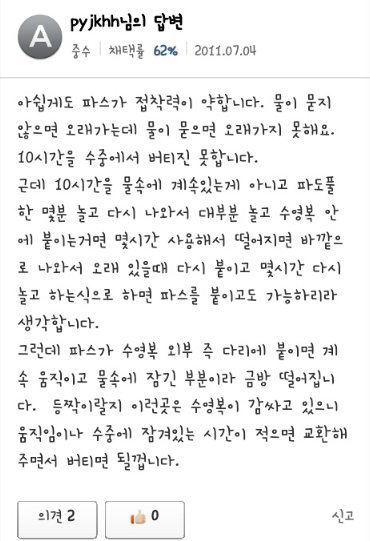 A
pyjkhh님의 답변
중수 채택률 62% 2011.07.04
아쉽게도 파스가 접착력이 약합니다. 물이 묻지
않으면 오래가는데 물이 묻으면 오래가지 못해요.
10시간을 수중에서 버티진 못합니다.
근데 10시간을 물속에 계속있는게 아니고 파도풀
한 몇분 놀고 다시 나와서 대부분 놀고 수영복 안
에 붙이는거면 몇시간 사용해서 떨어지면 바깥으
로 나와서 오래 있을때 다시 붙이고 몇시간 다시
놀고 하는식으로 하면 파스를 붙이고도 가능하리라
생각합니다.
그런데 파스가 수영복 외부 즉 다리에 붙이면 계
속 움직이고 물속에 잠긴 부분이라 금방 떨어집니
다. 등짝이랄지 이런곳은 수영복이 감싸고 있으니
움직임이나 수중에 잠겨있는 시간이 적으면 교환해
주면서 버티면 될껍니다.
의견 2 0 신고